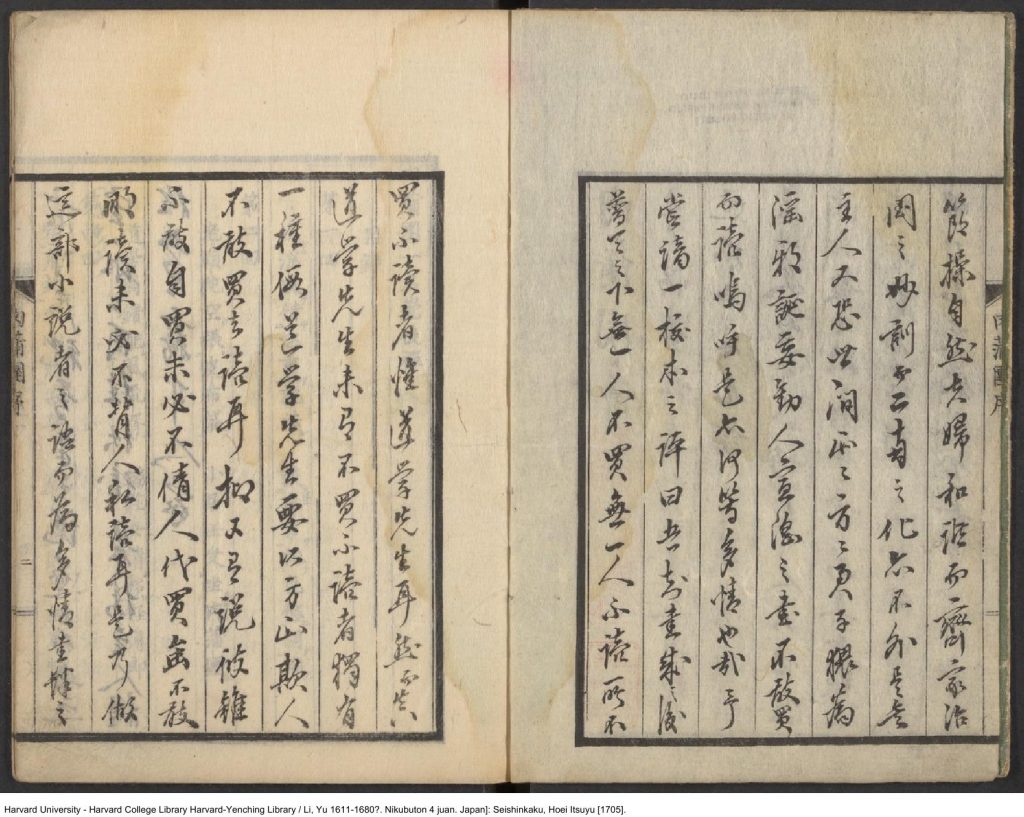 節操自然夫婦和諧而齊家治
國之妙二南之化亦不外是矣
主人又恐世间正々方々之君子猥為
淫邪誕妄勸人宣淫之書不敢買
而讀嗚呼是亦何等多情也哉予
嘗一本之評曰吾知書成之後
普天之下無一人不買無一人不讀所不
肉蒲團序
買不讀者惟道學先生耳然而真
道學先生未有不買不讀者獨有
一種假道學先生要以方正欺人
不敢買去讀耳抑又有説彼雖
不敢自買未必不倩人代買雖不敢
明讀未必不背人私讀耳是乃做
這部小説者之語而為多情書肆之
肉蒲團序
二
Harvard University - Harvard College Library Harvard-Yenching Library / Li, Yu 1611-1680?. Nikubuton 4 juan. Japan]: Seishinkaku, Hoei Itsuyu [1705].